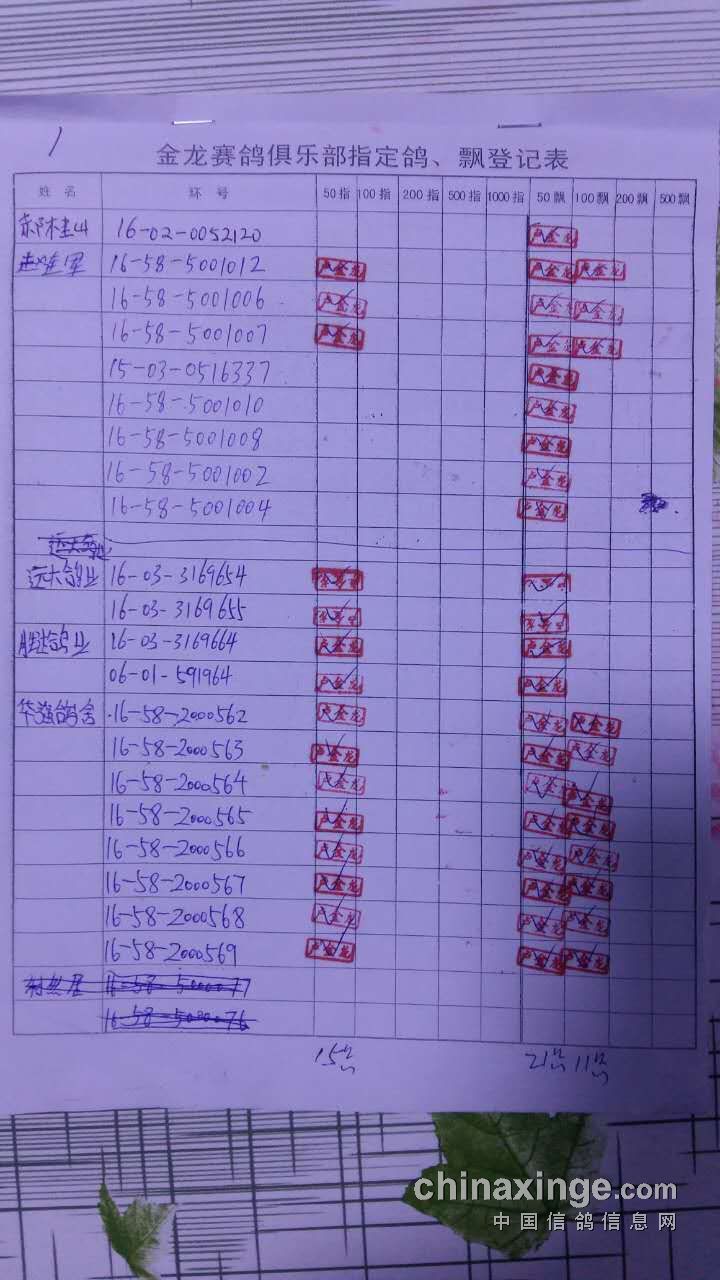 1
金龙赛鸽俱乐部指定鸽、飘登记表
姓 名 环 号 50指 100指 200指 500指 1000指 50飘 100飘 200飘 500飘
16-02-0052120 卢金龙
16-58-5001012 卢金龙 卢金龙 卢金龙
16-58-5001006 卢金龙 卢金龙 卢金龙
16-58-5001007 卢金龙 卢金龙 卢金龙
15-03-0516337 卢金龙
16-58-5001010 卢金龙
16-58-5001008 卢金龙
16-58-5001002 卢金龙
16-58-5001004 卢金龙
远大鸽业
远大鸽业 16-03-3169654
16-03-3169655
胜利鸽业 16-03-3169664 卢金龙 卢金龙
06-01-591964 卢金龙 卢金龙
华强鸽舍 16-58-2000562 卢金龙 卢金龙 卢金龙
16-58-2000563 卢金龙 卢金龙 卢金龙
16-58-2000564 卢金龙 卢金龙 卢金龙
16-58-2000565 卢金龙 卢金龙 卢金龙
16-58-2000566 卢金龙 卢金龙 卢金龙
16-58-2000567 卢金龙 卢金龙 卢金龙
16-58-2000568 卢金龙 卢金龙 卢金龙
16-58-2000569 卢金龙 卢金龙 卢金龙
16-58-5000077
16-58-5000076
15 21 11
chinaxinge.com
中国信鸽信息网